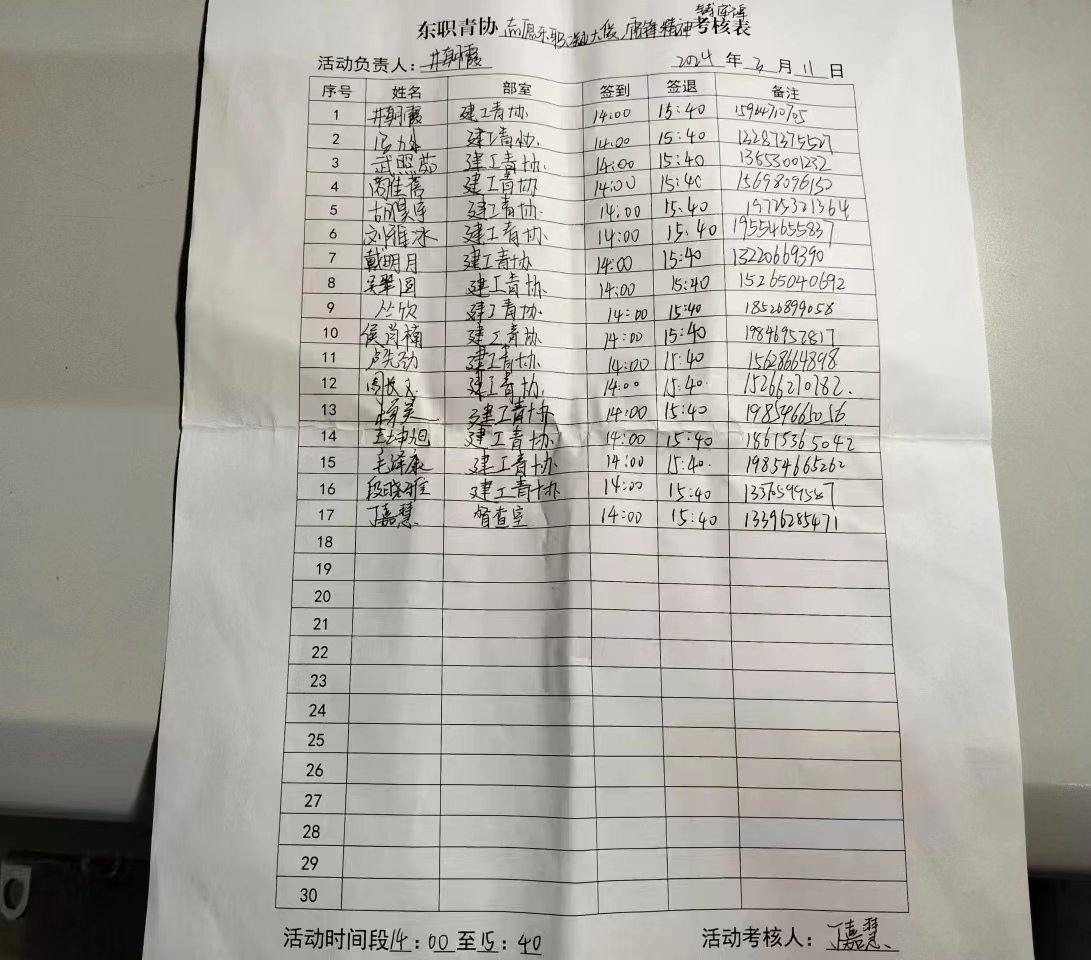 东职青协 志愿东职凝大爱,雷锋精神铸军魂 考核表
活动负责人: 井朝霞 2024 年 3 月 11 日
序号 姓名 部室 签到 签退 备注
1 井朝霞 建工青协 14:00 15:40 15964710705
2 建工青协 14:00 15:40 13287375527
3 武照茹 建工青协 14:00 15:40 13653001232
4 建工青协 14:00 15:40 15698096152
5 胡昊宇 建工青协 14:00 15:40 19725321364
6 刘雅冰 建工青协 14:00 15:40 19554655837
7 戴明月 建工青协 14:00 15:40 13220669390
8 建工青协 14:00 15:40 15265040692
9 丛欣 建工青协 14:00 15:40 18526899058
10 侯尚楠 建工青协 14:00 15:40 19846957817
11 卢先劲 建工青协 14:00 15:40 15628664898
12 建工青协 14:00 15:40 15266270782
13 建工青协 14:00 15:40 19854665056
14 王坤旭 建工青协 14:00 15:40 18615365042
15 毛泽康 建工青协 14:00 15:40 19854665262
16 段晓雅 建工青协 14:00 15:40 13376599587
17 丁嘉慧 督查室 14:00 15:40 13396285471
18
19
20
21
22
23
24
25
26
27
28
29
30
活动时间段14:00至15:40 活动考核人: 丁嘉慧